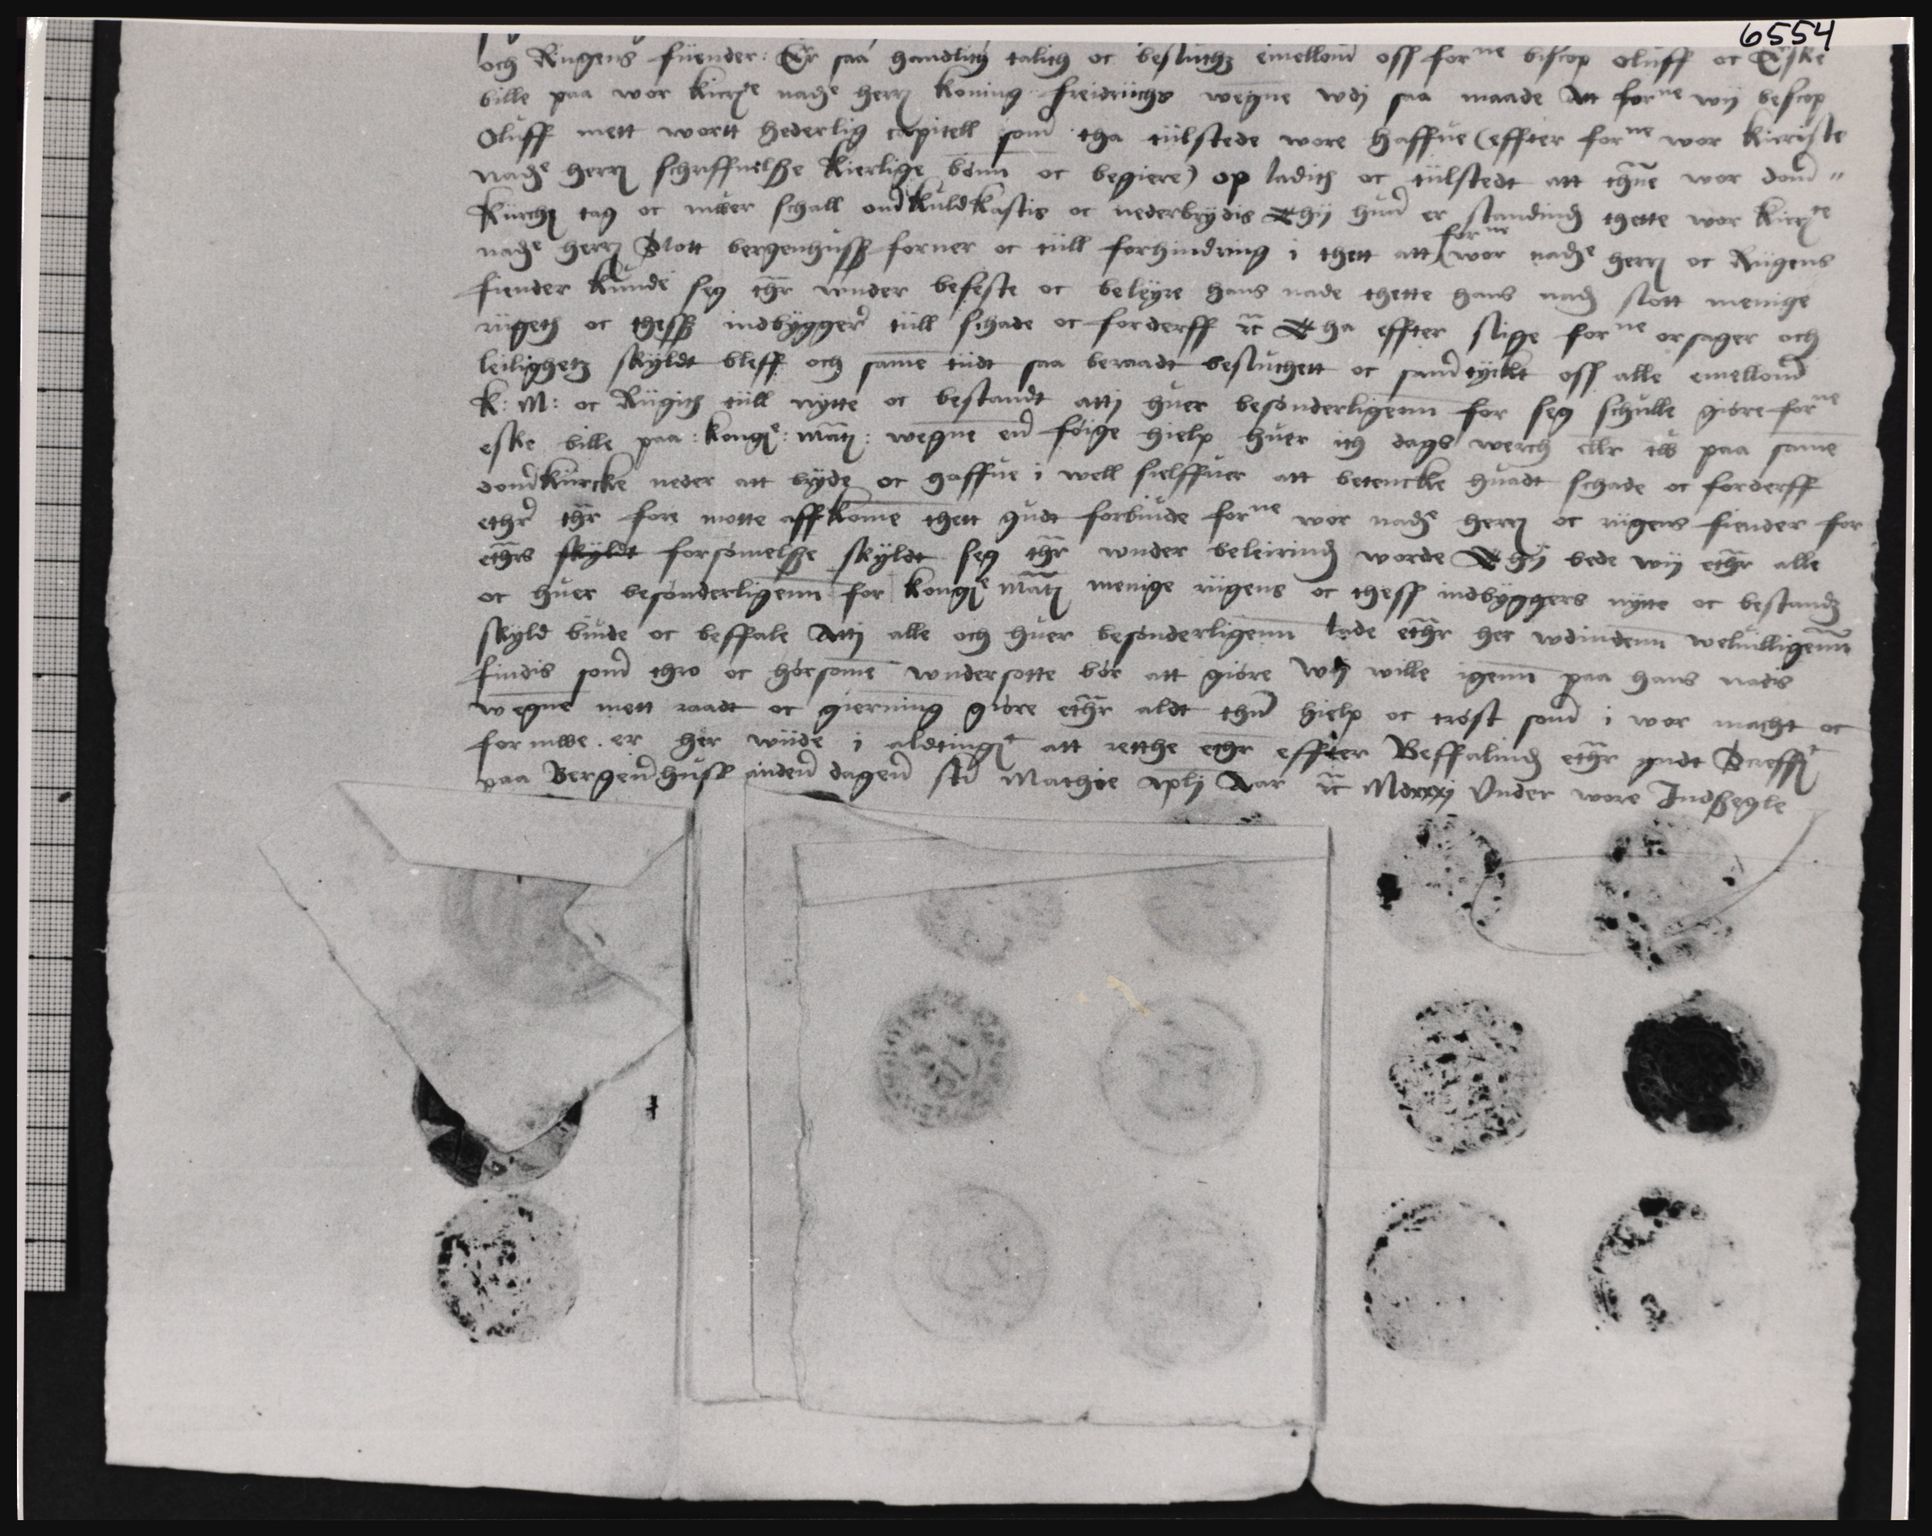 6554
och Rigens fiiender: Er saa handlith talith oc besluthz emellom oss forne biscop oluff oc Eske
bille paa wor kierste nadhe herr koning freidriichs wegne wdj saa maade Att forne wij bescop
Oluff mett wortt hederlig capitell som tha tiilstede wore haffue (effter forne wor kieriste
nadhe herr schriffuelsse kierlige bönn oc begiere) op ladith oc tiilstedt att thene wor dom"
kiirche tag oc mwer schall omkuldkastis oc nederbrydis Thij hun er standind thette wor kierste
nadhe herr Slott bergenhuss forner oc tiill forhindring i thett att forne wor nadhe herr oc Riigens
fiender kunde seg ther wnder befeste oc beleyre hans nade thette hans nadz slott menige
riigeth oc thess indbyggere tiill schade oc forderff etc Tha effter slige forne orsager och
leilighetz skyldt bleff och same tiidt saa beraadt besluthett oc samtyckt oss alle emellom
K: M: oc Riigith tiill nytte oc bestandt attj huer besonderligenn for seg schulle giöre forne
eske bille paa: konge: matz: wegne en föige hielp huer ith dags werch eller tw paa same
domkiircke neder att bryde oc haffue i well sielffuer att betencke huadt schade oc forderff
ether ther fore motte affkome thett gudt forbiude forne wor nadhe herr oc riigens fiender for
ethers skyldt forsömelsse skyldt seg ther wnder beleirind worde Thij bede wij ether alle
oc huer besönderligenn for konge matz menige riigens oc thess indbyggers nytte oc bestandz
skyld biude oc beffale Attj alle och huer besönderligenn lade ether her wdindenn weluilligenn
findis som thro oc hörsome wndersotte bör att giöre Wij wille igenn paa hans nadis
wegne mett raadt oc gierning giöre ether aldt then hielp oc tröst som i wor macht oc
formwe er her wiide i aldtingest att retthe ether effter Beffalind ether gudt Screffuet
paa Bergenhuss anden dagen sti Mathie aplj Aar etc Mdxxxj Under wore Indsegle